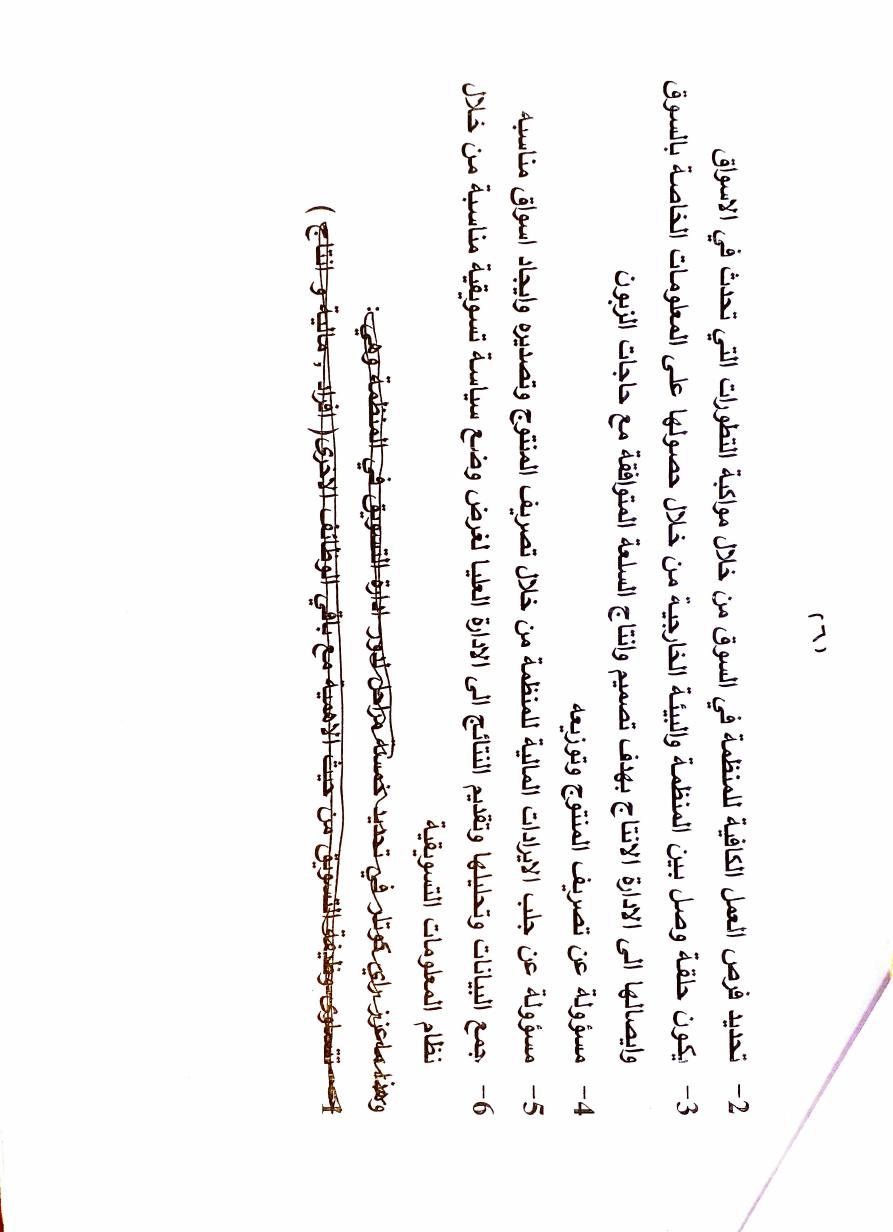 (٢٦)
2- تحديد فرص العمل الكافية للمنظمة في السوق من خلال مواكبة التطورات التي تحدث في الاسواق
3- يكون حلقة وصل بين المنظمة والبيئة الخارجية من خلال حصولها على المعلومات الخاصة بالسوق
وايصالها الى الادارة الانتاج بهدف تصميم وانتاج السلعة المتوافقة مع حاجات الزبون
4- مسؤولة عن تصريف المنتوج وتوزيعه
5- مسؤولة عن جلب الايرادات المالية للمنظمة من خلال تصريف المنتوج وتصديره وايجاد اسواق مناسبه
6- جمع البيانات وتحليلها وتقديم النتائج الى الادارة العليا لغرض وضع سياسة تسويقية مناسبة من خلال
نظام المعلومات التسويقية
وهذا ما عزز راي كوتلر في تحديد خمسة مراحل لدور ادارة التسويق في المنظمة وهي:
تتساوى وظيفة التسويق من حيث الاهمية مع باقي الوظائف الاخرى( افراد , مالية و انتاج )